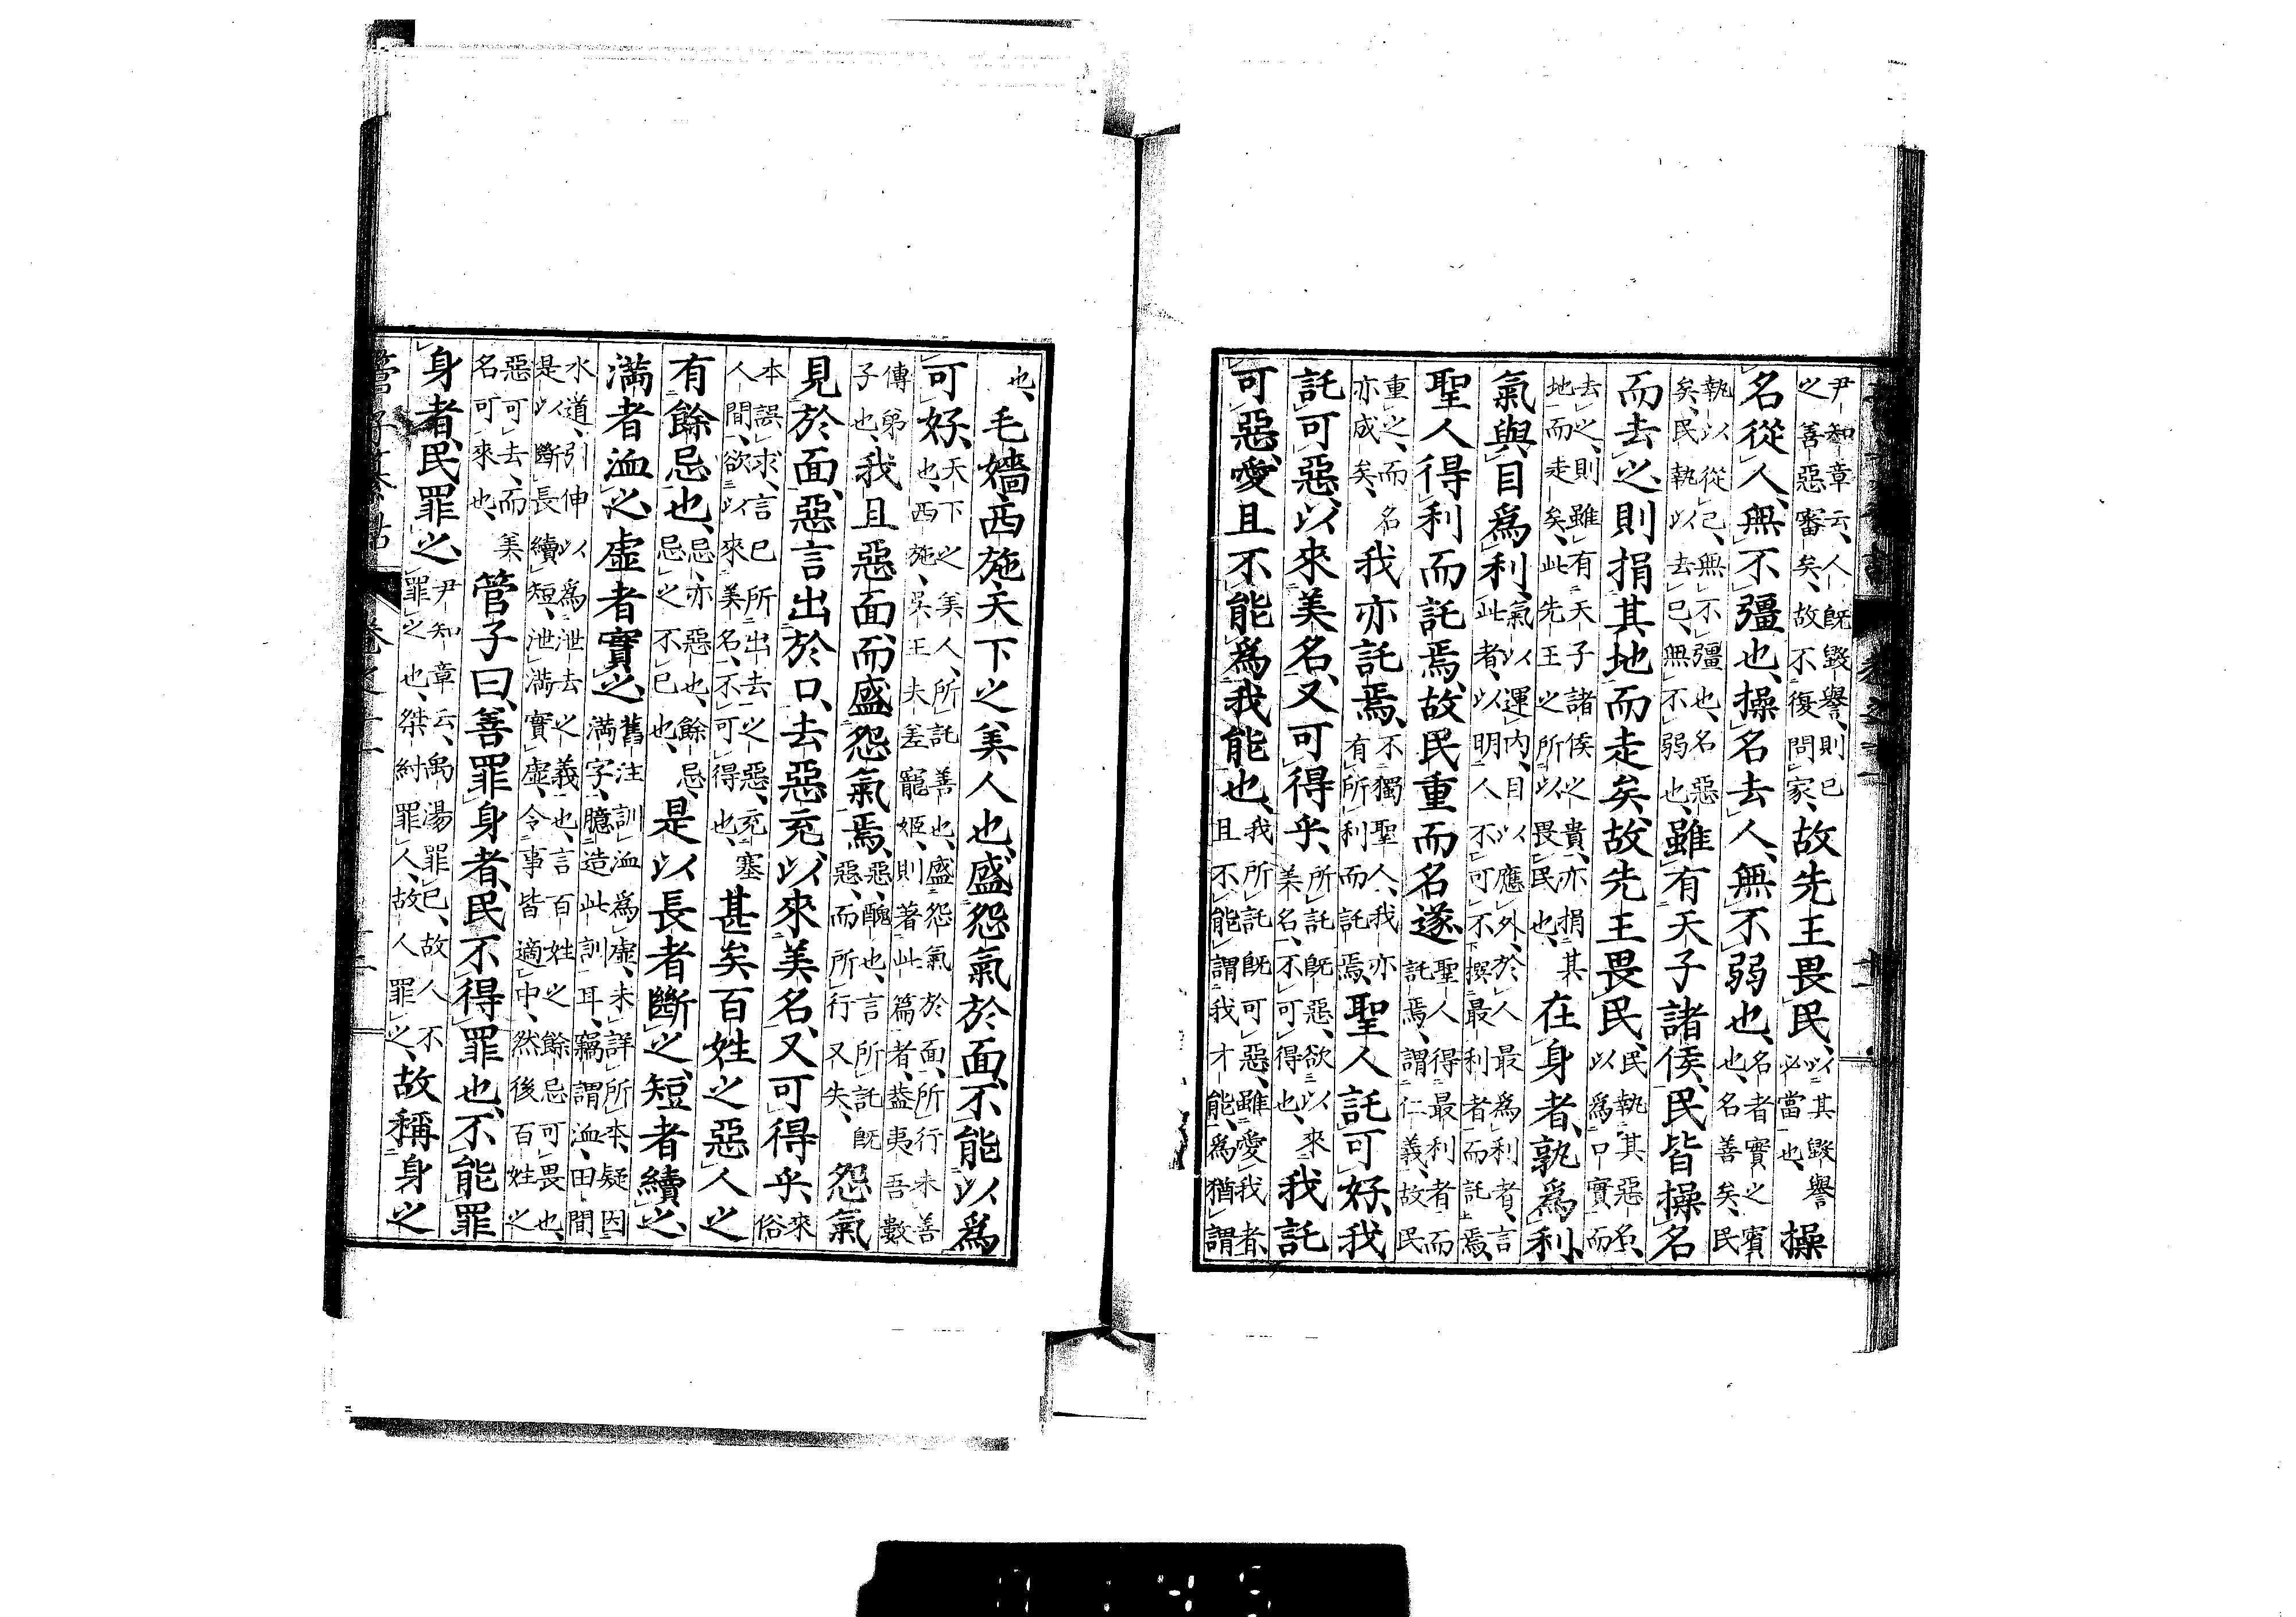 尹知章云、人既毀譽、則已
之善惡審矣、故不復問家、
故先王畏民、
以其毀譽
必當也、
操
名從人、無不彊也、操名去人、無不弱也、
名者實之賓
也、名善矣、民
執以從己、無不彊也、名惡
矣、民執以去已、無不弱也、
雖有天子諸侯、民皆操名
而去之、則捐其地而走矣、故先王畏民、
民執其惡名、
以爲口實而
去之、則雖有天子諸侯之貴、亦捐其
地而走矣、此先王之所以畏民也、
在身者、孰爲利、
氣與目爲利、
氣以運内、目以應外、於人最爲利者、言
此者、以明人不可不撰最利者而託焉、
聖人得利而託焉、故民重而名遂、
聖人得最利者而
託焉、謂仁義、故民
重之、而名
亦成矣、
我亦託焉、
不獨聖人、我亦
有所利而託焉、
聖人託可好、我
託可惡、以來美名、又可得乎、
所託既惡、欲以來
美名、不可得也、
我託
可惡、愛且不能爲我能也、
我所託既可惡、雖愛我者、
且不能謂我才能、爲猶謂
也、毛嬙西施、天下之美人也、盛怨氣於面、不能以爲
可好、
天下之美人、所託善也、盛怨氣於面、所行未善
也、西施、吳王夫差寵姬、則著此篇者、蓋夷吾數
傳弟
子也、
我且惡面、而盛怨氣焉、
惡、醜也、言所託既
惡、而所行又失、
怨氣
見於面、惡言出於口、去惡充、以來美名、又可得乎、
來
俗
本誤求、言已所出去之惡、充塞
人間、欲以來美名、不可得也、
甚矣百姓之惡人之
有餘忌也、
忌、亦惡也、餘忌、
忌之不已也、
是以長者斷之、短者續之、
滿者洫之、虛者實之、
舊注訓洫爲虛、未詳所本、疑因
滿字、臆造此訓耳、竊謂洫、田間
水道、引伸以爲泄去之義也、言百姓之餘忌可畏也、
是以斷長續短、泄滿實虛、令事皆適中、然後百姓之
惡可去、而美
名可來也、
管子曰、善罪身者、民不得罪也、不能罪
身者、民罪之、
尹知章云、禹湯罪已、故人不
罪之也、桀紂罪人、故人罪之、
故稱身之
管子纂詁 卷之十一 十二